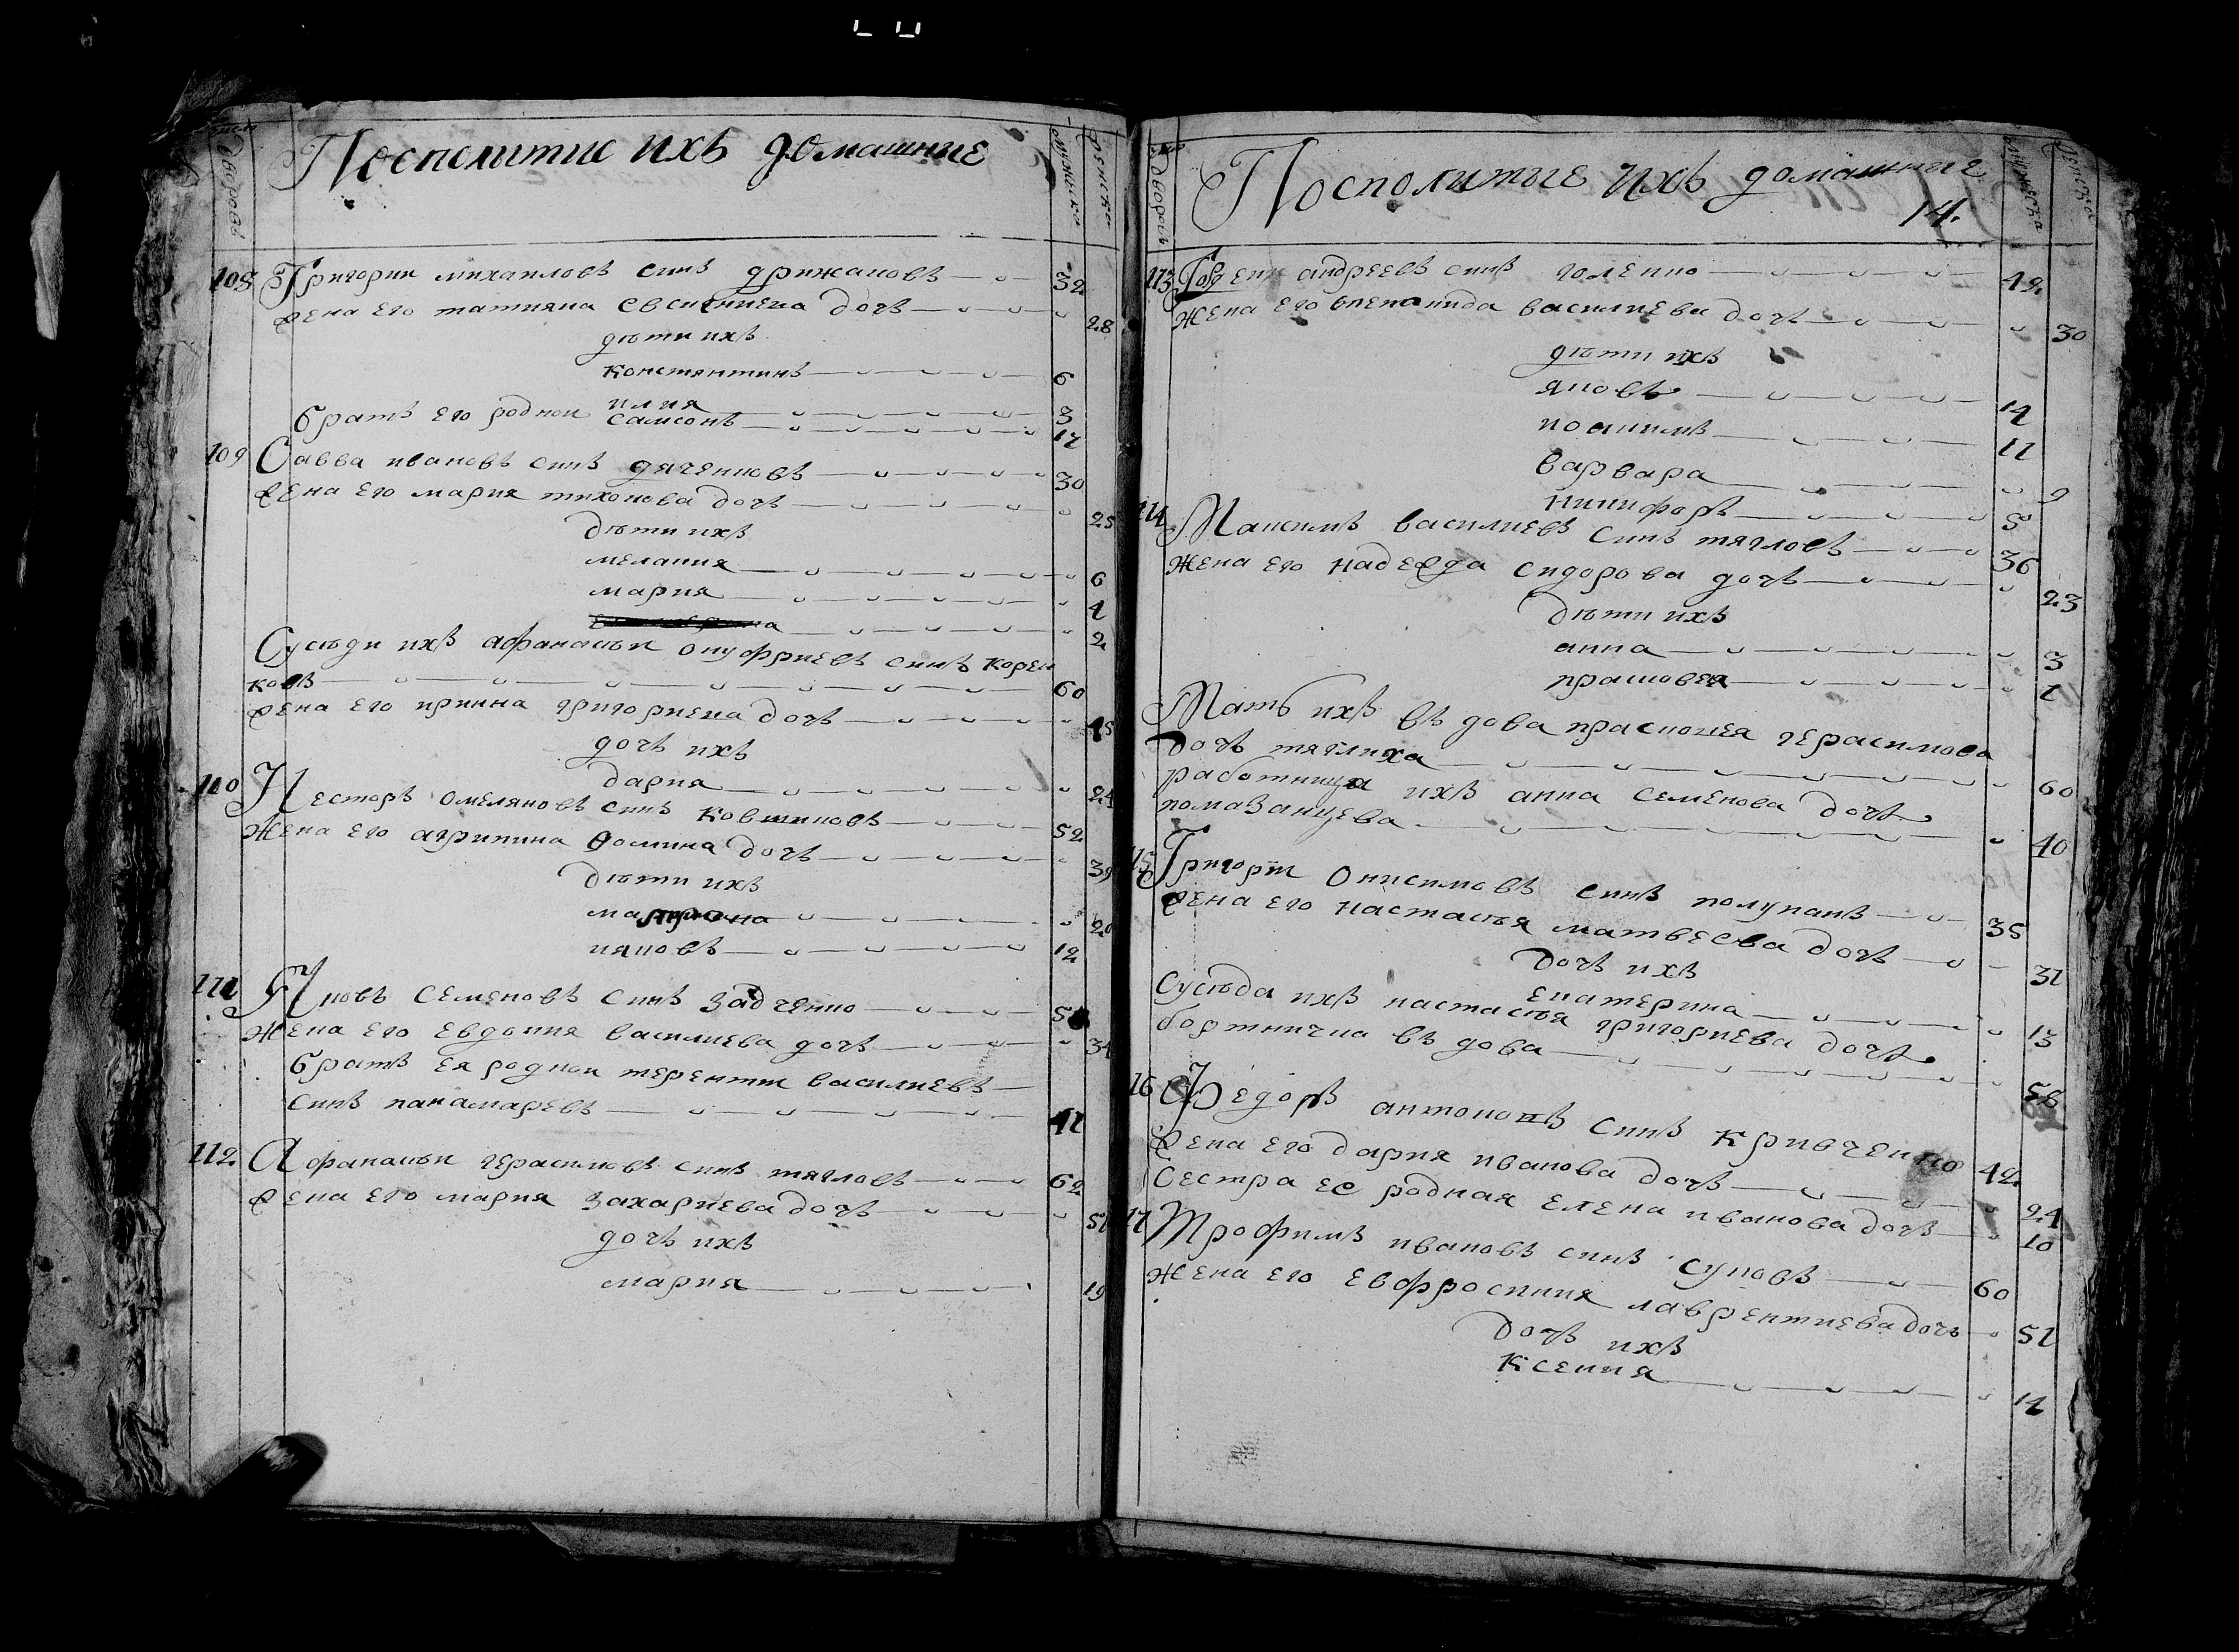 дворовъ
Посполитие ихъ домашние
мужеска
женска
108 Григории михаиловъ синъ дрижаковъ 32
жена его татияна Евсиґниева дочъ 28
дѣти ихъ
константинъ 6
илия 3
братъ его роднои самсонъ 17
109 Савва ивановъ синъ дяченковъ 30
жена его мария тихонова дочъ 25
дѣти ихъ
мелания 6
мария 4
2
Сусѣди ихъ афанасѣи онуфриевъ синъ корен
ковъ 60
жена его ирина григориева дочъ 45
дочъ ихъ
дария 24
110 Несторъ омеляновъ синъ ковшиковъ 52
жена его агрипина Ѳомина дочъ 39
дѣти ихъ
20
ияковъ 12
111 Яковъ семеновъ синъ Задченко
жена его евдокия василиева дочъ 34
братъ ея роднои терентии василиевъ
синъ панамаревъ 41
112 Афанасѣи герасимовъ синъ тягловъ 62
жена его мария захариева дочъ 51
дочъ ихъ
мария 19
дворовъ
Посполитые ихъ домашние
14.
мужеска
женска
113 андреевъ синъ голенко 42
жена его василиева дочъ 30
дѣти ихъ
яковъ 14
иоакимъ 11
варвара 9
никифоръ 5
114 Максимъ василиевъ синъ тягловъ 36
жена его надежда сидорова дочъ 23
дѣти ихъ
анна 3
прасковея 1
Мать ихъ въ дова прасковея герасимова
дочъ тяглиха 60
работница ихъ анна семенова дочъ
помазанцева 40
15 Григории Онисимовъ синъ полупанъ 35
жена его настасѣя матвеева дочъ 31
дочъ ихъ
екатерина 13
Сусѣда ихъ настасѣя григориева дочъ
бортничка въ дова 58
16 Ѳедоръ антоновъ синъ кривченко 42
жена его дария иванова дочъ 24
Сестра ее родная елена иванова дочъ 10
17 Трофимъ ивановъ синъ суковъ 60
жена его евфросиния лаврентиева дочъ 51
дочъ ихъ
ксения 14